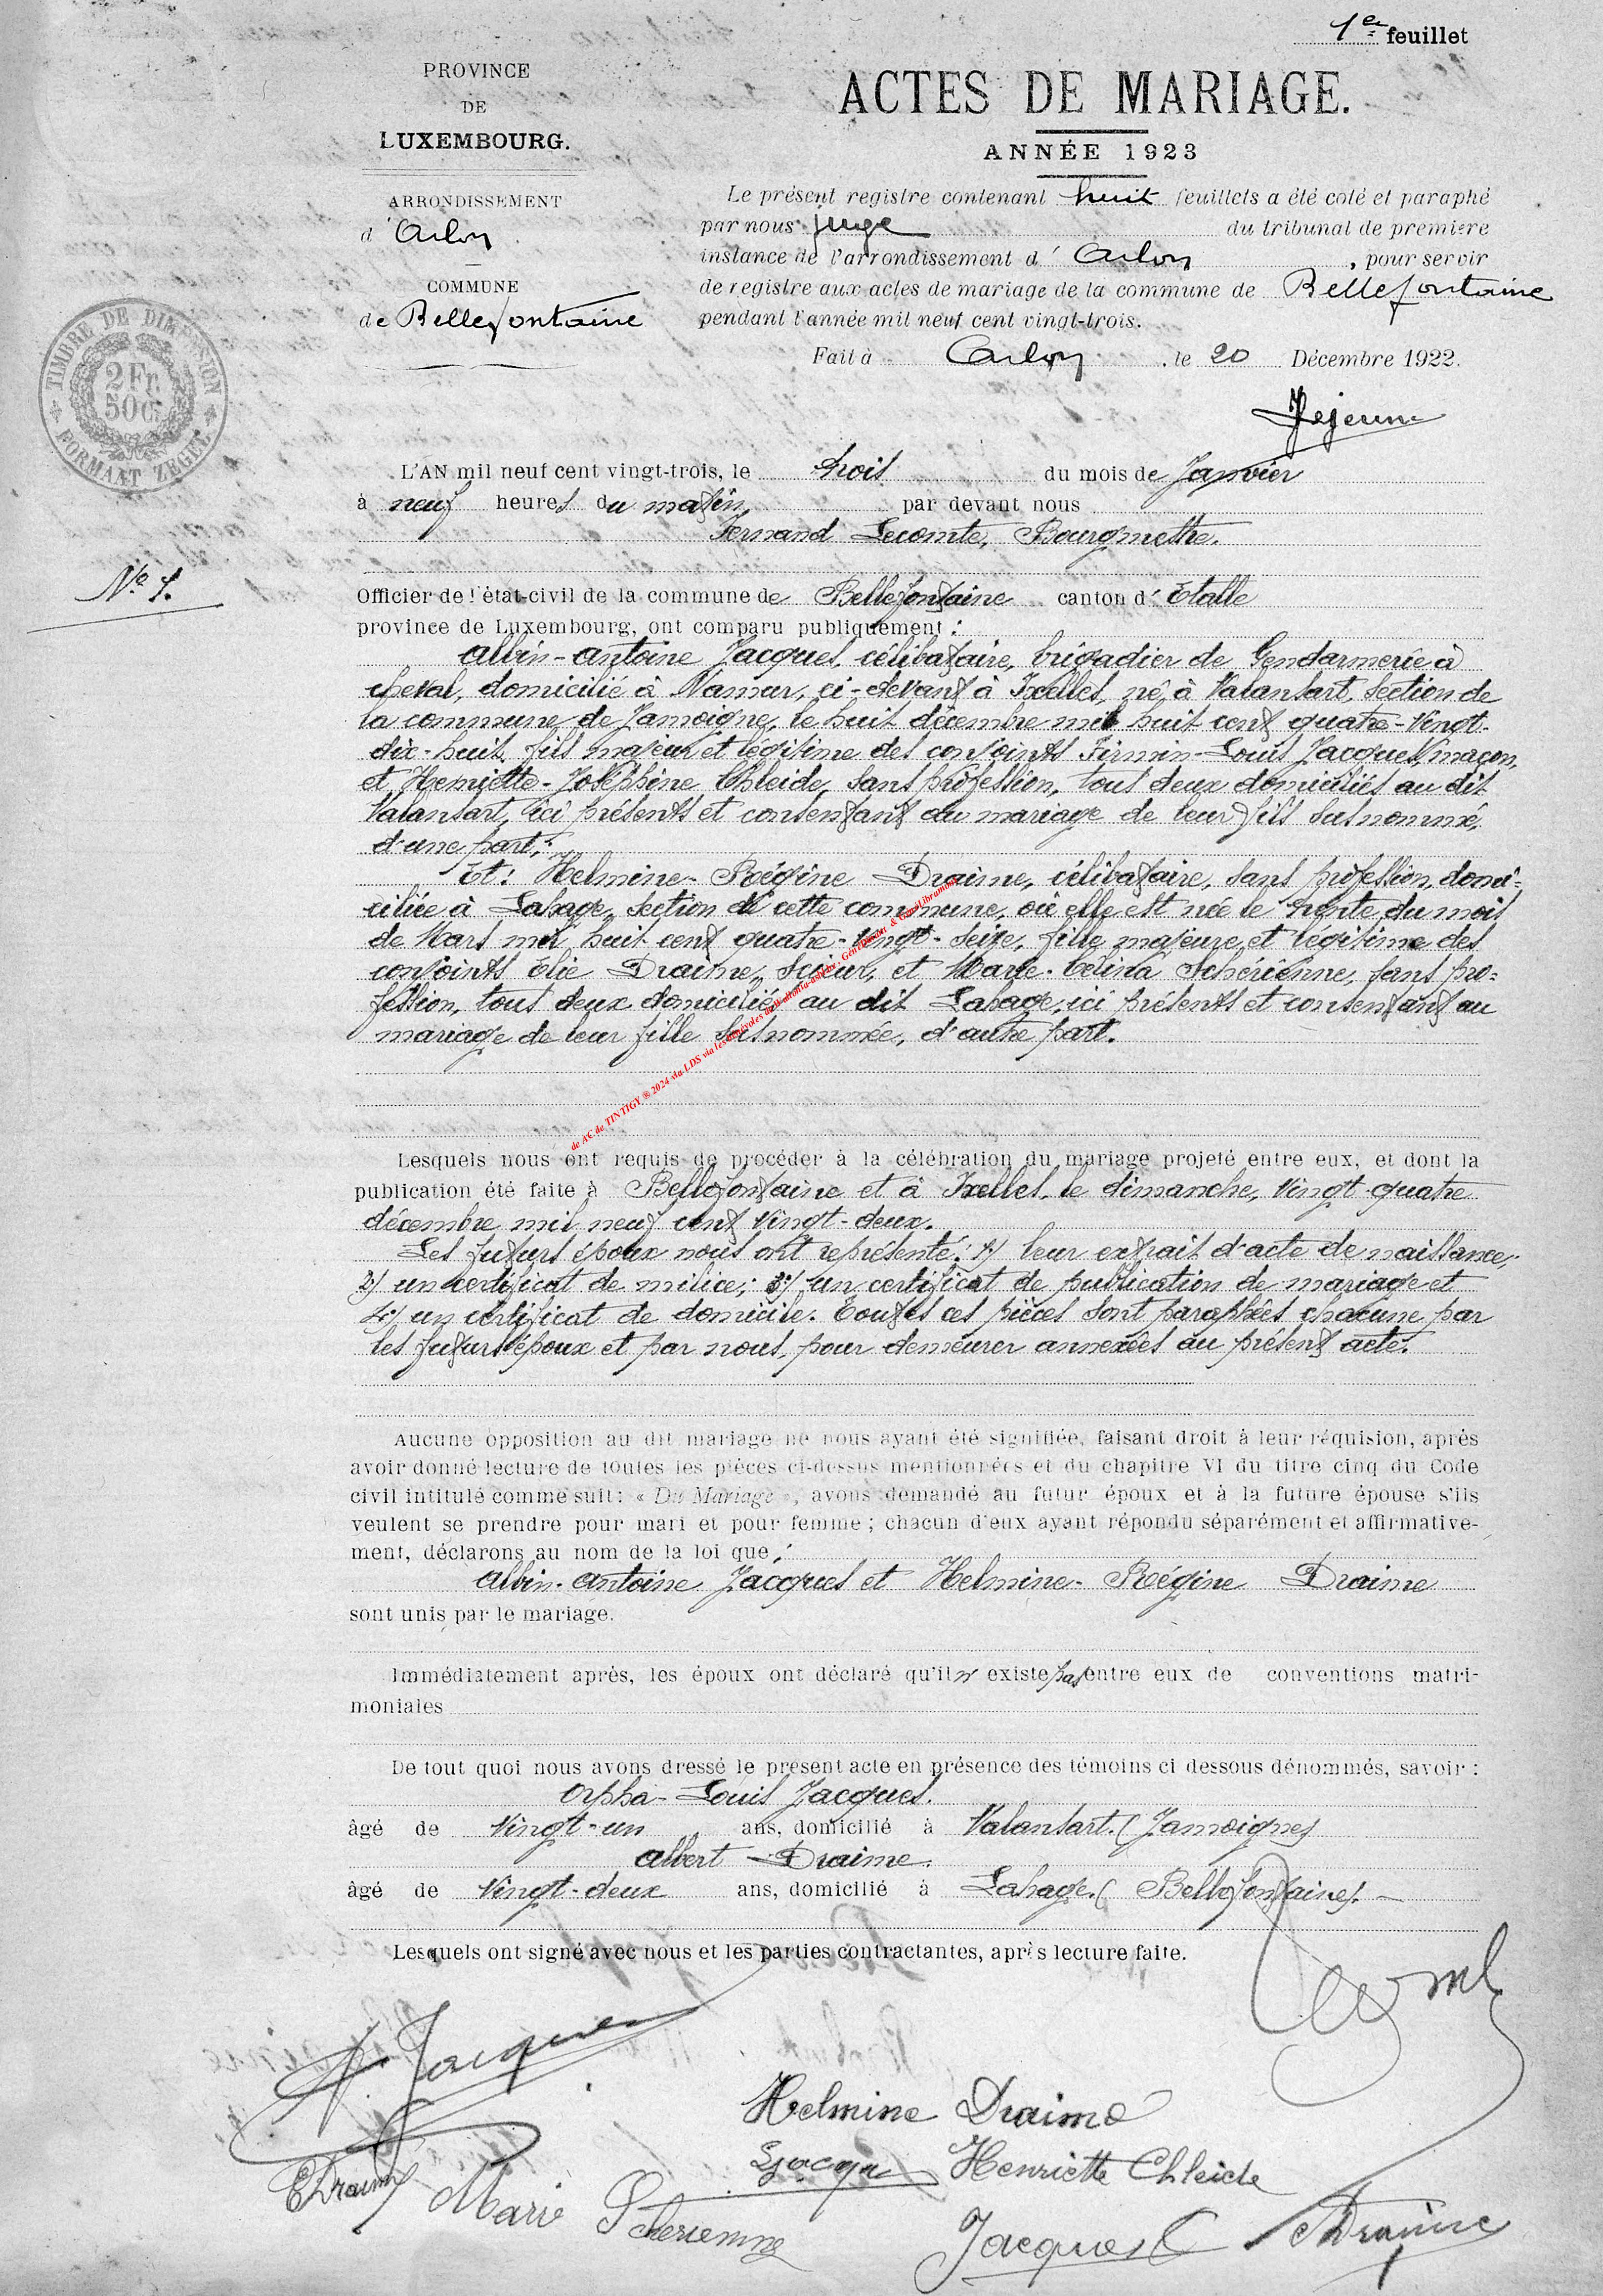 1er feuillet
PROVINCE
DE
LUXEMBOURG.
ARRONDISSEMENT
d'Arlon
COMMUNE
de Bellefontaine
TIMBRE DE DIMENSION
2 Fr.
50 C.
FORMAAT ZEGEL
ACTES DE MARIAGE.
ANNÉE 1923
Le présent registre contenant huit feuillets a été coté et paraphé
par nous juge du tribunal de première
instance de l'arrondissement d'Arlon, pour servir
de registre aux actes de mariage de la commune de Bellefontaine
pendant l'année mil neuf cent vingt-trois.
Fait à Arlon, le 20 Décembre 1922.
L'AN mil neuf cent vingt-trois, le trois du mois de Janvier
à neuf heures du matin, par devant nous
Fernand Lecomte, Bourgmestre.
No 1.
Officier de l'état-civil de la commune de Bellefontaine canton d'Etalle
province de Luxembourg, ont comparu publiquement :
Albin-Antoine Jacques, célibataire, brigadier de Gendarmerie à
cheval, domicilié à Namur, ci-devant à Ixelles, né à Valansart, section de
la commune de Jamoigne, le huit décembre mil huit cent quatre-vingt-
dix-huit, fils majeur et légitime des conjoints Firmin-Louis Jacques, maçon,
et Henriette-Joséphine Chleide, sans profession, tous deux domiciliés au dit
Valansart, ici présents et consentant au mariage de leur fils susnommé,
d'une part;
Et: Helmine-Régine Draime, célibataire, sans profession, domi-
ciliée à Lahage, section de cette commune, où elle est née le trente du mois
de Mars mil huit cent quatre-vingt-seize, fille majeure et légitime des
conjoints Elie Draime, scieur, et Marie-Célina Schérienne, sans pro-
fession, tous deux domiciliés au dit Lahage, ici présents et consentant au
mariage de leur fille susnommée, d'autre part.
de AC de TINTIGY ® 2024 via LDS via les bénévoles de
Lesquels nous ont requis de procéder à la célébration du mariage projeté entre eux, et dont la
publication été faite à Bellefontaine et à Ixelles, le dimanche, vingt-quatre
décembre mil neuf cent vingt-deux.
Les futurs époux nous ont représenté: 1) leur extrait d'acte de naissance;
2) un certificat de milice; 3) un certificat de publication de mariage et
4) un certificat de domicile. Toutes ces pièces sont paraphées chacune par
les futurs époux et par nous, pour demeurer annexées au présent acte.
Aucune opposition au dit mariage ne nous ayant été signifiée, faisant droit à leur réquision, après
avoir donné lecture de toutes les pièces ci-dessus mentionnées et du chapitre VI du titre cinq du Code
civil intitulé comme suit : « Du Mariage », avons demandé au futur époux et à la future épouse s'ils
veulent se prendre pour mari et pour femme ; chacun d'eux ayant répondu séparément et affirmative-
ment, déclarons au nom de la loi que :
Albin-Antoine Jacques et Helmine-Régine Draime
sont unis par le mariage.
Immédiatement après, les époux ont déclaré qu'il n'existe pas entre eux de conventions matri-
moniales
De tout quoi nous avons dressé le présent acte en présence des témoins ci dessous dénommés, savoir :
Orpha-Louis Jacques.
âgé de vingt-un ans, domicilié à Valansart. (Jamoigne)
Albert Draime.
âgé de vingt-deux ans, domicilié à Lahage. (Bellefontaine).
Lesquels ont signé avec nous et les parties contractantes, après lecture faite.
A. Jacques
Helmine Draime
Henriette Chleide
EDraime
Marie Scherienne
Jacques
ADraime